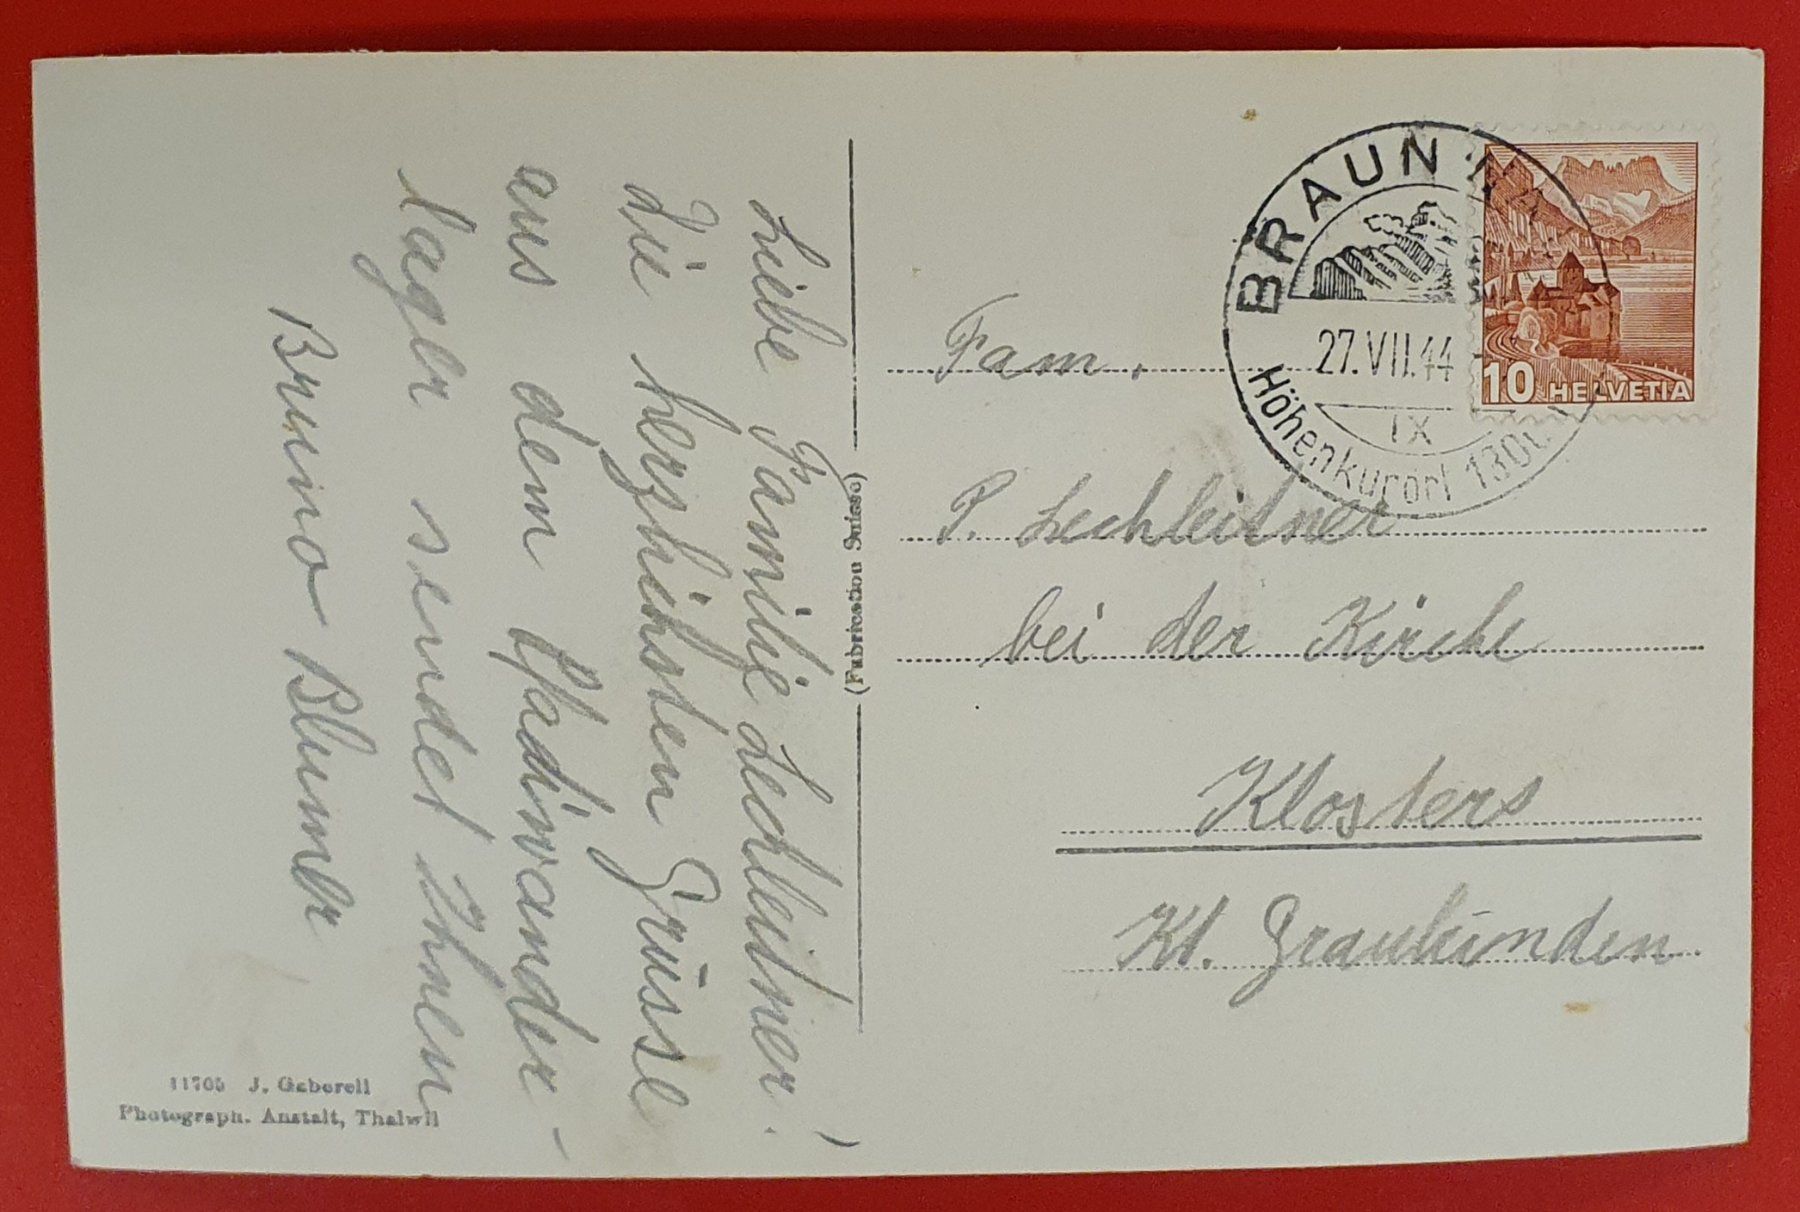 Liebe Familie Lechleitner!
Die herzlichsten Grüsse
aus dem Pfadiwander-
lager sendet Ihnen
Bruno Blumer
11705 J. Gaberell
Photograph. Anstalt, Thalwil
(Fabrication Suisse)
BRAUNWALD
27.VII.44
IX
Höhenkurort 1300
10 HELVETIA
Fam.
P. Lechleitner
bei der Kirche
Klosters
Kt. Graubünden